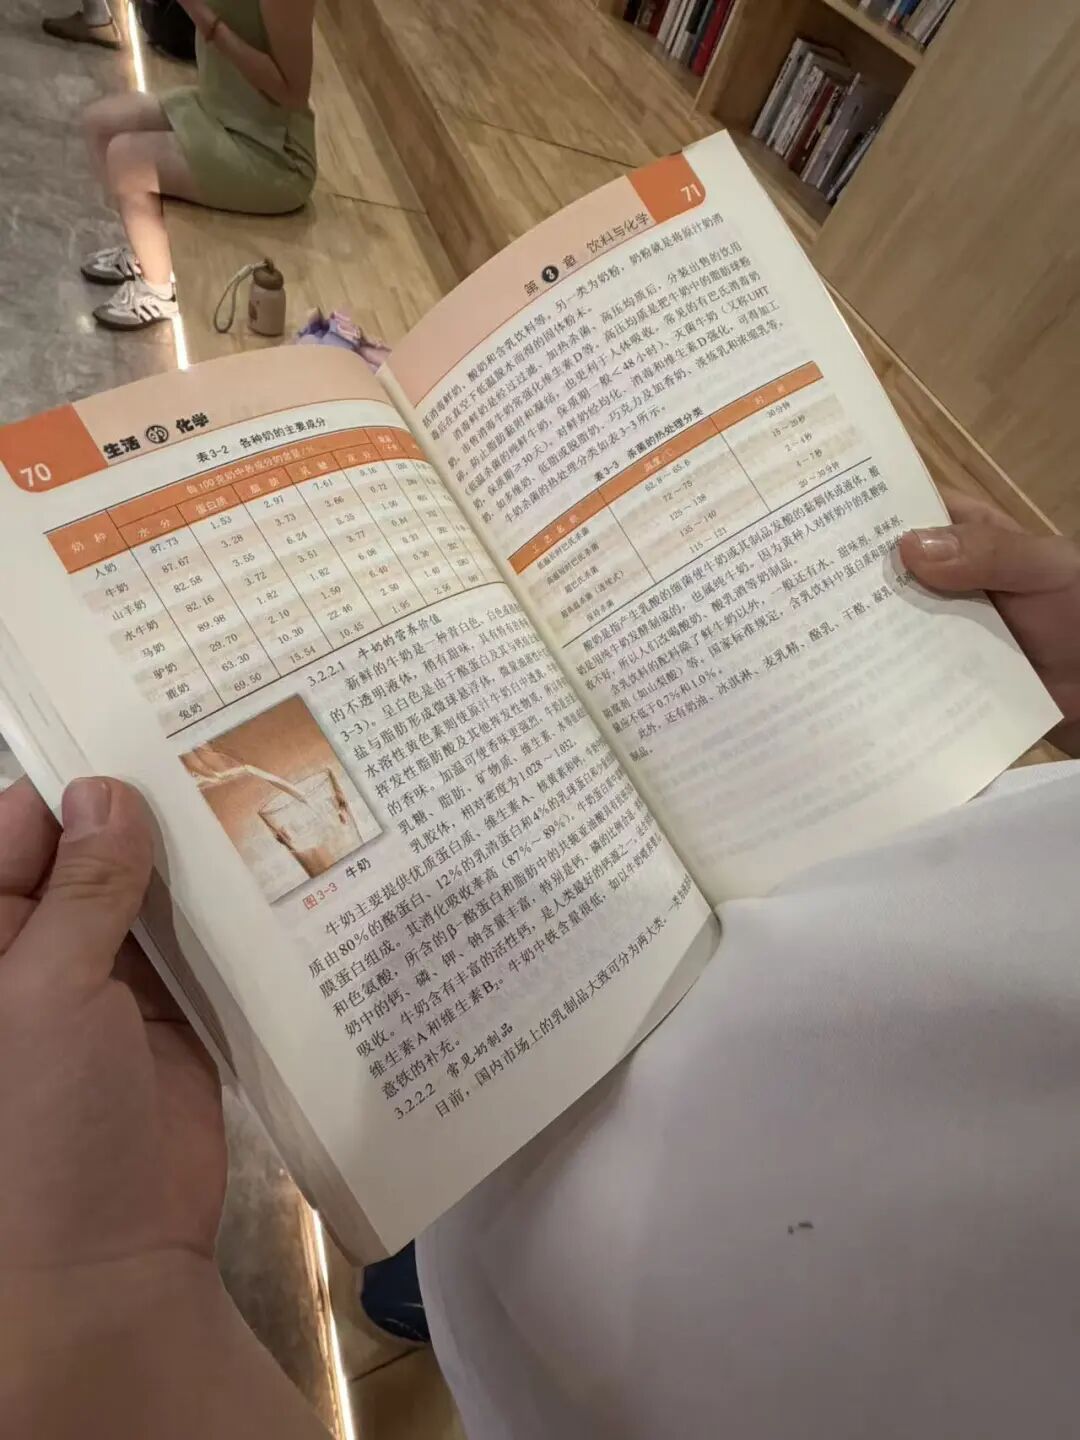 70
生活 的 化学
表3-2 各种奶的主要成分
奶 种
每100克奶中各成分的含量/克
水 分 蛋白质 脂 肪 乳 糖 灰 分
人奶 87.73 1.53 2.97 7.61 0.16
牛奶 87.67 3.28 3.73 3.66 0.72
山羊奶 82.58 3.55 6.24 5.35
水牛奶 82.16 3.72 3.51 3.77
马奶 89.98 1.82 1.82 6.08
驴奶 29.70 2.10 1.50 6.40
鹿奶 63.30 10.30 22.46 2.50
兔奶 69.50 15.54 10.45 1.95 2.56
3.2.2.1 牛奶的营养价值
新鲜的牛奶是一种青白色、白色或稍
的不透明液体，稍有甜味，具有特有的香
3-3）。呈白色是由于酪蛋白及其与钙
盐与脂肪形成微球悬浮体，微量油溶性
水溶性黄色素则使原汁牛奶白中透黄。牛奶
挥发性脂肪酸及其他挥发性物质，所以
的香味。加温可使香味更强烈。牛奶是
乳糖、脂肪、矿物质、维生素、水等组成
乳胶体，相对密度为1.028～1.032。
图3-3 牛奶
牛奶主要提供优质蛋白质、维生素A、核黄素和钙。牛奶
质由80%的酪蛋白、12%的乳清蛋白和4%的乳球蛋白和
膜蛋白组成。其消化吸收率高（87%～89%）。牛奶蛋白质中
和色氨酸，所含的β-酪蛋白和脂肪中的共轭亚油酸具有
奶中的钙、磷、钾、钠含量丰富，特别是钙、磷的比例合适，
吸收。牛奶含有丰富的活性钙，是人类最好的钙源之一。
维生素A和维生素B₂。牛奶中铁含量很低，如以牛奶喂养婴
意铁的补充。
3.2.2.2 常见奶制品
目前，国内市场上的乳制品大致可分为两大类。一类
第 3 章 饮料与化学
71
括消毒鲜奶、酸奶和含乳饮料等。另一类为奶粉，奶粉就是将原汁奶消
毒后在真空下低温脱水而得的固体粉末。
消毒鲜奶是经过过滤、加热杀菌、高压均质后，分装出售的饮用
奶。出售消毒牛奶常强化维生素D等。高压均质是把牛奶中的脂肪球粉
碎，防止脂肪黏附和凝结，也更利于人体吸收。常见的有巴氏消毒奶
（低温杀菌的纯鲜牛奶，保质期一般＜48小时）、灭菌牛奶（又称UHT
奶，保质期≥30天）。对鲜奶经均化、消毒和维生素D强化，可得加工
奶，如多维奶、低脂或脱脂奶、巧克力及加香奶、淡炼乳和浓缩乳等。
牛奶杀菌的热处理分类如表3-3所示。
表3-3 杀菌的热处理分类
工 艺 名 称 温度/℃ 时 间
低温长时巴氏杀菌 62.8～65.6 30分钟
高温短时巴氏杀菌 72～75 15～20秒
超巴氏杀菌 125～138 2～4秒
超高温杀菌（连续式） 135～140 4～7秒
保持杀菌 115～121 20～30分钟
酸奶是指产生乳酸的细菌使牛奶或其制品发酸的黏稠体或液体，酸
奶是用纯牛奶发酵制成的，也属纯牛奶。因为黄种人对鲜奶中的乳糖吸
收不好，所以人们改喝酸奶、酸乳酒等奶制品。
含乳饮料的配料除了鲜牛奶以外，一般还有水、甜味剂、果味剂、
防腐剂（如山梨酸）等，国家标准规定，含乳饮料中蛋白质和脂肪的含
量应不低于0.7%和1.0%。
此外，还有奶油、冰淇淋、麦乳精、酪乳、干酪、凝乳、
制品。